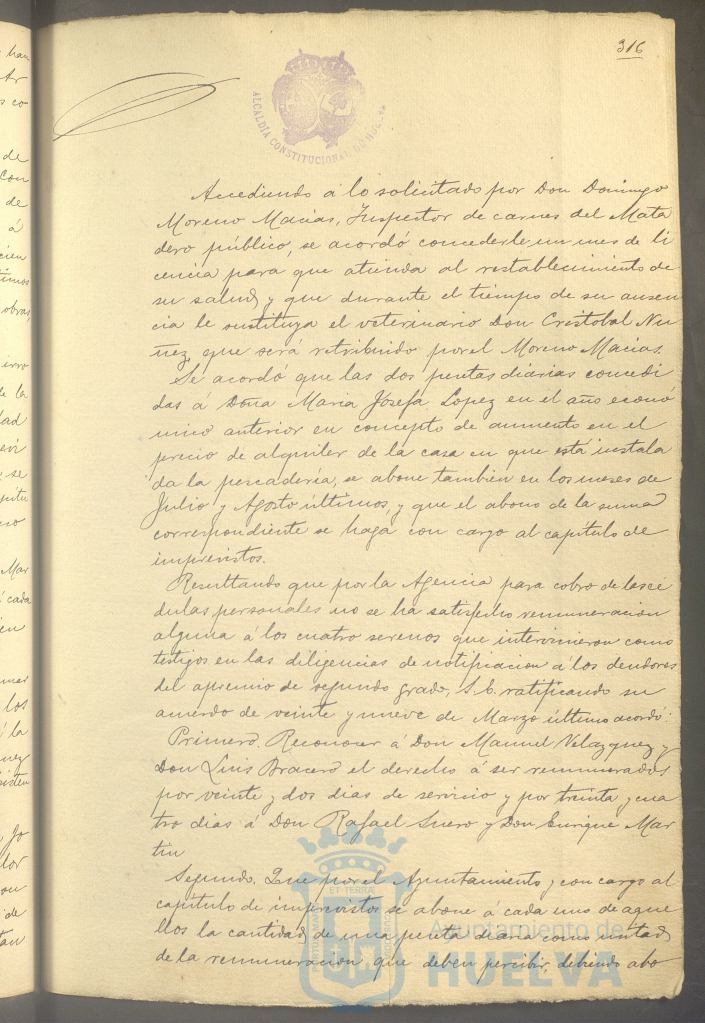 316
ALCALDÍA CONSTITUCIONAL DE HUELVA
Accediendo á lo solicitado por Don Domingo
Moreno Macias, Inspector de carnes del Mata
dero público, se acordó concederle un mes de li
cencia para que atienda al restablecimiento de
su salud y que durante el tiempo de su ausen
cia le sustituya el veterinario Don Cristobal Nu
ñez, que será retribuido por el Moreno Macias.
Se acordó que las dos pesetas diarias concedi
das á Doña Maria Josefa Lopez en el año econó
mico anterior en concepto de aumento en el
precio de alquiler de la casa en que está instala
da la pescadería, se abone tambien en los meses de
Julio y Agosto últimos, y que el abono de la suma
correspondiente se haga con cargo al capítulo de
imprevistos.
Resultando que por la Agencia para cobro de las cé
dulas personales no se ha satisfecho remuneracion
alguna á los cuatro serenos que intervinieron como
testigos en las diligencias de notificacion á los deudores
del apremio de segundo grado, S.E. ratificando su
acuerdo de veinte y nueve de Marzo último acordó:
Primero. Reconocer á Don Manuel Velazquez y
Don Luis Bracero el derecho á ser remunerados
por veinte y dos dias de servicio y por treinta y cua
tro dias á Don Rafael Suero y Don Enrique Mar
tin
Segundo. Que por el Ayuntamiento y con cargo al
capítulo de imprevistos se abone á cada uno de aque
llos la cantidad de una peseta diaria como mitad
de la remuneracion que deben percibir, debiendo abo
Ayuntamiento de
HUELVA